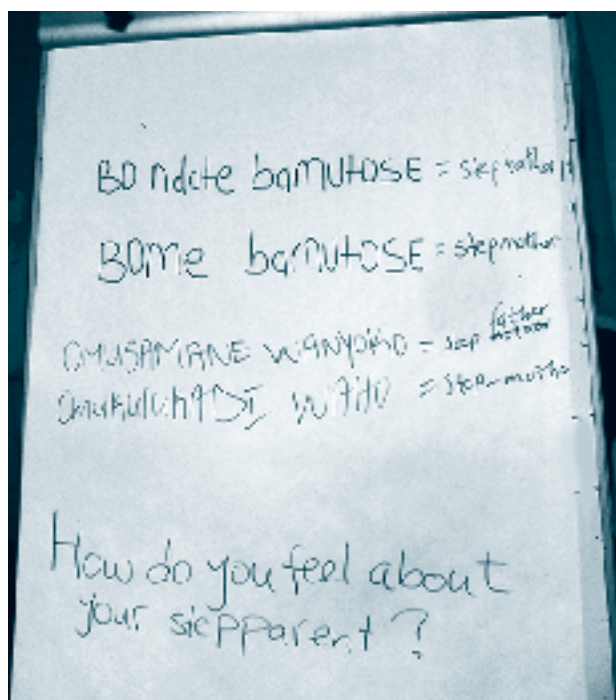 BO ndate bamutose = stepfather
BOme bamutose = stepmother
OMUSAMANE WANYOKO = step father
OMUKULUKADI WAIHO = step-mother
How do you feel about
your stepparent?